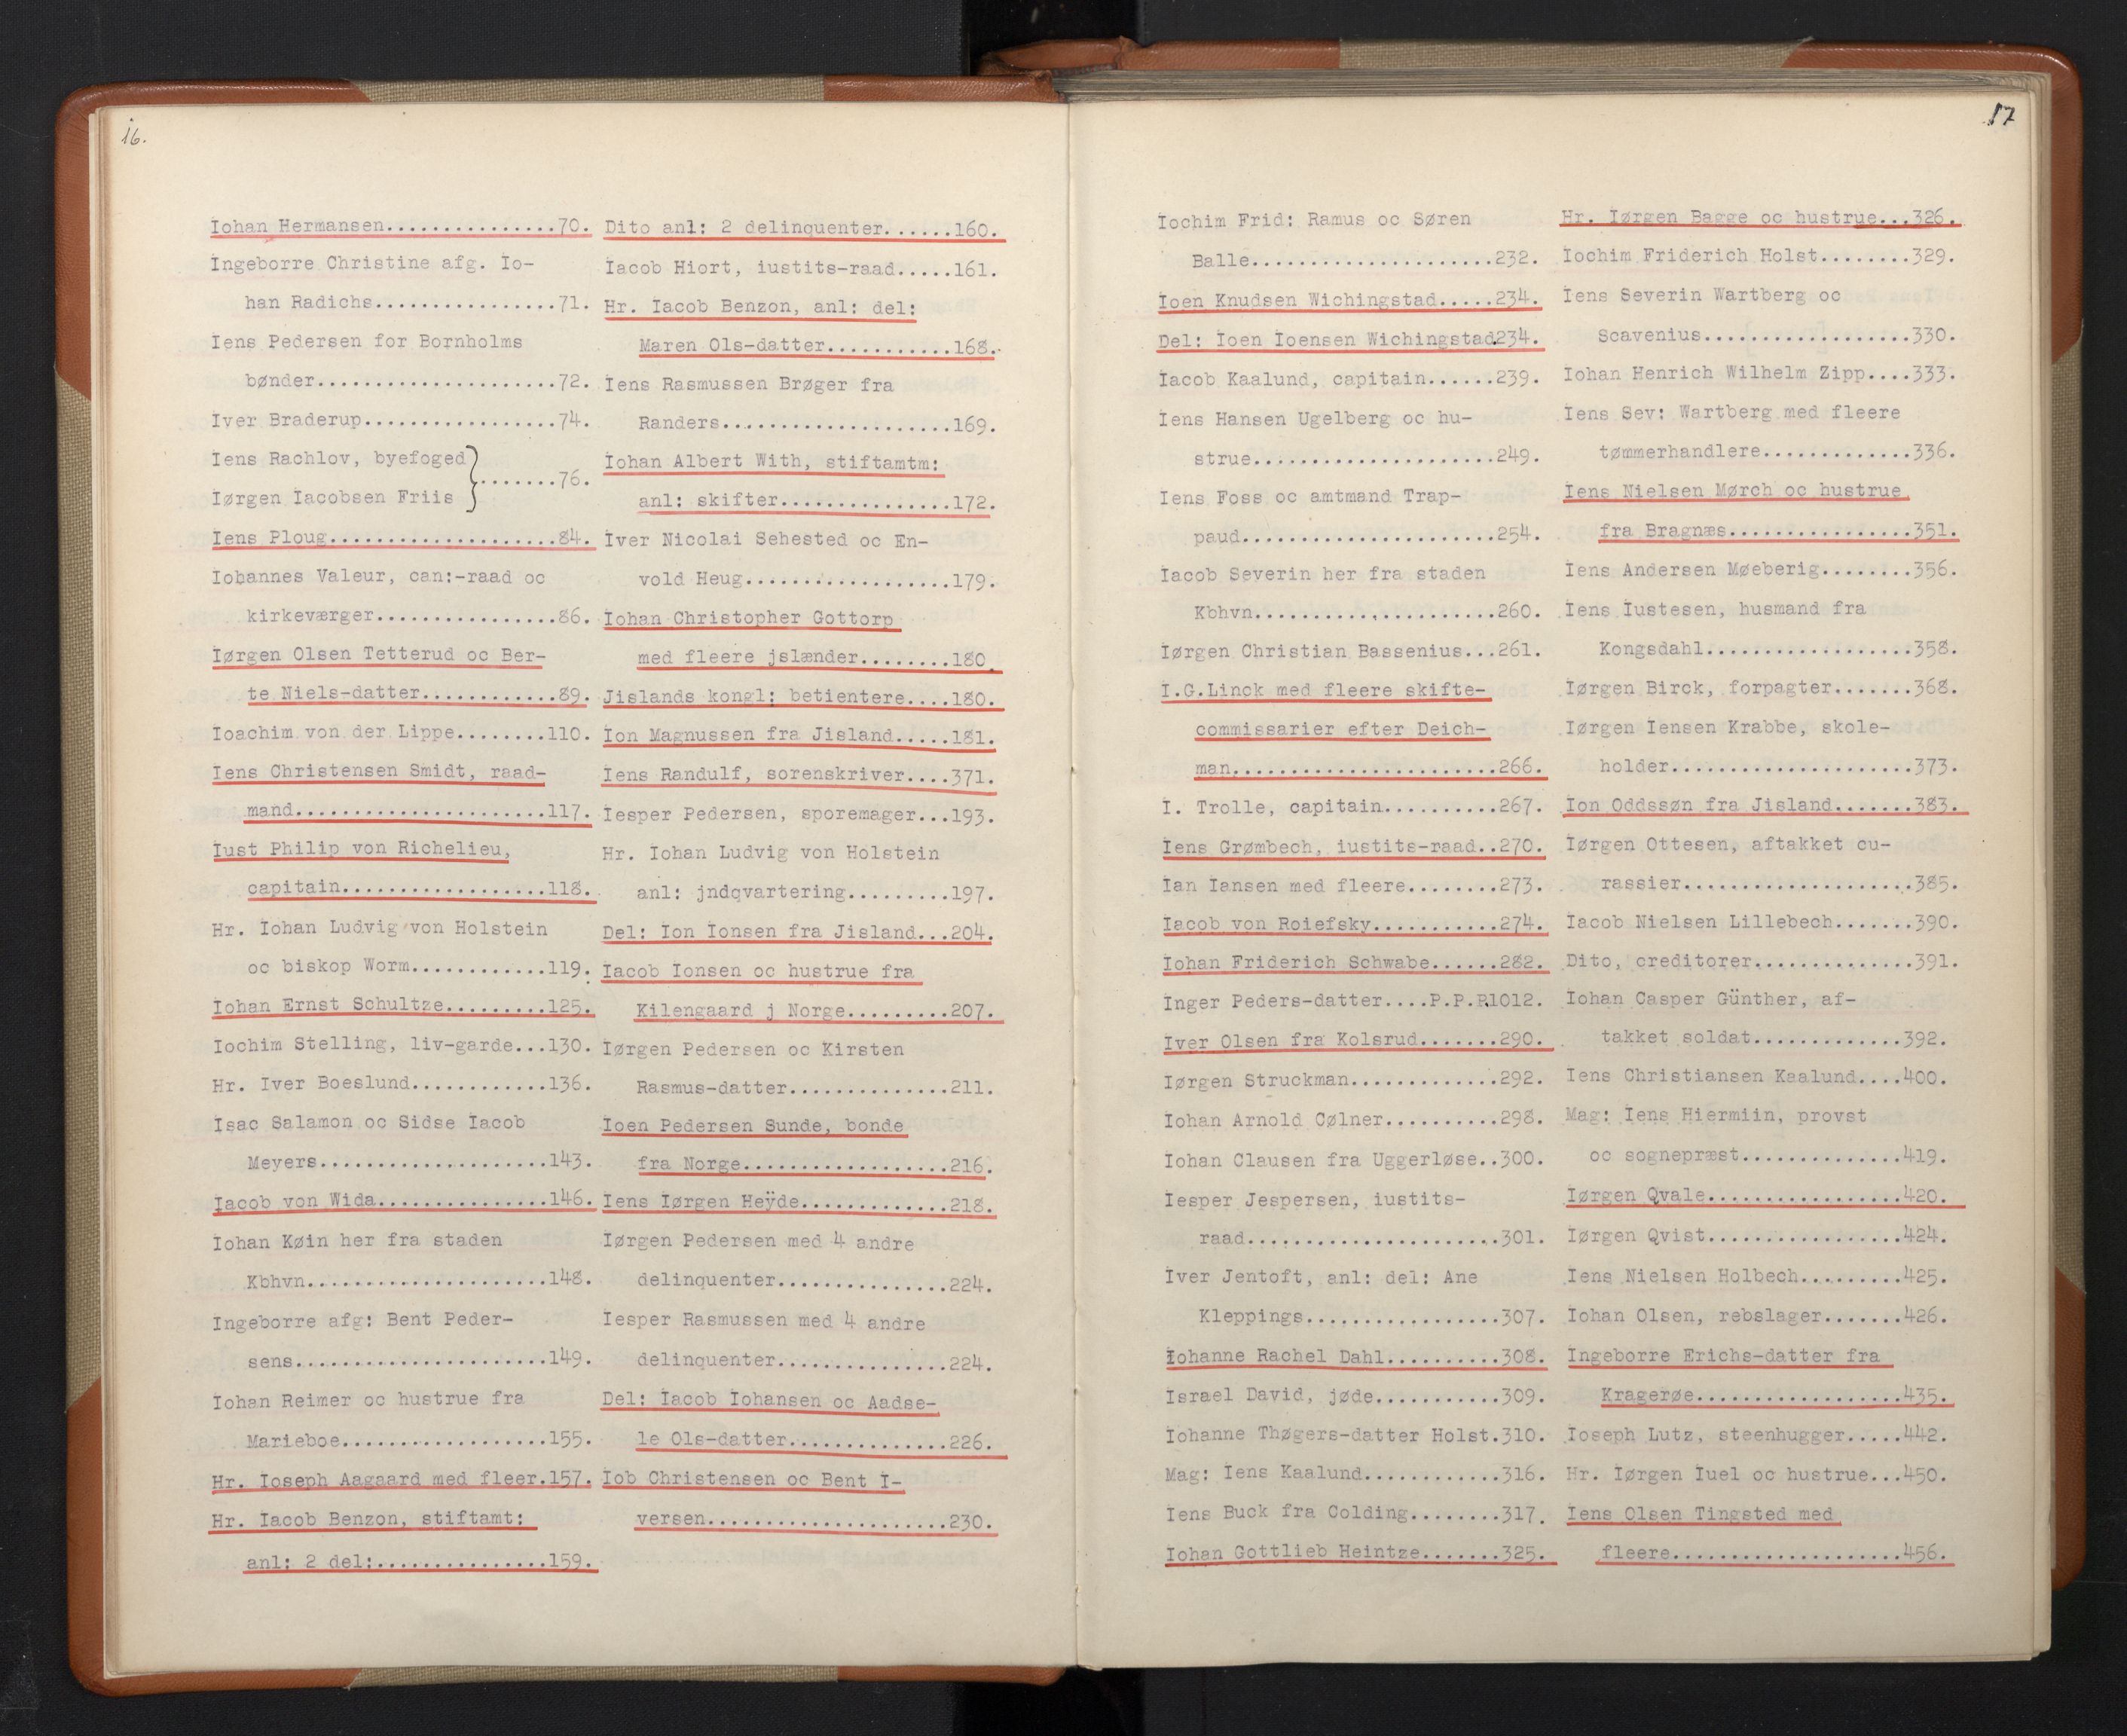 16.
Iohan Hermansen...............70.
Ingeborre Christine afg. Io-
han Radichs................71.
Iens Pedersen for Bornholms
bønder.....................72.
Iver Braderup.................74.
Iens Rachlov, byefoged
Iørgen Iacobsen Friis }.......76.
Iens Ploug....................84.
Iohannes Valeur, can:-raad oc
kirkeværger................86.
Iørgen Olsen Tetterud oc Ber-
te Niels-datter............89.
Ioachim von der Lippe........110.
Iens Christensen Smidt, raad-
mand......................117.
Iust Philip von Richelieu,
capitain..................118.
Hr. Iohan Ludvig von Holstein
oc biskop Worm............119.
Iohan Ernst Schultze.........125.
Iochim Stelling, liv-garde...130.
Hr. Iver Boeslund............136.
Isac Salamon oc Sidse Iacob
Meyers....................143.
Iacob von Wida...............146.
Iohan Køin her fra staden
Kbhvn.....................148.
Ingeborre afg: Bent Peder-
sens......................149.
Iohan Reimer oc hustrue fra
Marieboe..................155.
Hr. Ioseph Aagaard med fleer.157.
Hr. Iacob Benzon, stiftamt:
anl: 2 del:...............159.
Dito anl: 2 delinquenter......160.
Iacob Hiort, iustits-raad.....161.
Hr. Iacob Benzon, anl: del:
Maren Ols-datter...........168.
Iens Rasmussen Brøger fra
Randers....................169.
Iohan Albert With, stiftamtm:
anl: skifter...............172.
Iver Nicolai Sehested oc En-
vold Heug..................179.
Iohan Christopher Gottorp
med fleere jslænder........180.
Jislands kongl: betientere....180.
Ion Magnussen fra Jisland.....181.
Iens Randulf, sorenskriver....371.
Iesper Pedersen, sporemager...193.
Hr. Iohan Ludvig von Holstein
anl: jndqvartering.........197.
Del: Ion Ionsen fra Jisland...204.
Iacob Ionsen oc hustrue fra
Kilengaard j Norge.........207.
Iørgen Pedersen oc Kirsten
Rasmus-datter..............211.
Ioen Pedersen Sunde, bonde
fra Norge..................216.
Iens Iørgen Heÿde.............218.
Iørgen Pedersen med 4 andre
delinquenter...............224.
Iesper Rasmussen med 4 andre
delinquenter...............224.
Del: Iacob Iohansen oc Aadse-
le Ols-datter..............226.
Iob Christensen oc Bent I-
versen.....................230.
17
Iochim Frid: Ramus oc Søren
Balle.....................232.
Ioen Knudsen Wichingstad.....234.
Del: Ioen Ioensen Wichingstad.234.
Iacob Kaalund, capitain......239.
Iens Hansen Ugelberg oc hu-
strue.....................249.
Iens Foss oc amtmand Trap-
paud......................254.
Iacob Severin her fra staden
Kbhvn.....................260.
Iørgen Christian Bassenius...261.
I.G.Linck med fleere skifte-
commissarier efter Deich-
man.......................266.
I. Trolle, capitain..........267.
Iens Grømbech, iustits-raad..270.
Ian Iansen med fleere........273.
Iacob von Roiefsky...........274.
Iohan Friderich Schwabe......282.
Inger Peders-datter....P.P.R1012.
Iver Olsen fra Kolsrud.......290.
Iørgen Struckman.............292.
Iohan Arnold Cølner..........298.
Iohan Clausen fra Uggerløse..300.
Iesper Jespersen, iustits-
raad......................301.
Iver Jentoft, anl: del: Ane
Kleppings.................307.
Iohanne Rachel Dahl..........308.
Israel David, jøde...........309.
Iohanne Thøgers-datter Holst.310.
Mag: Iens Kaalund............316.
Iens Buck fra Colding........317.
Iohan Gottlieb Heintze.......325.
Hr. Iørgen Bagge oc hustrue...326.
Iochim Friderich Holst........329.
Iens Severin Wartberg oc
Scavenius..................330.
Iohan Henrich Wilhelm Zipp....333.
Iens Sev: Wartberg med fleere
tømmerhandlere.............336.
Iens Nielsen Mørch oc hustrue
fra Bragnæs................351.
Iens Andersen Møeberig........356.
Iens Iustesen, husmand fra
Kongsdahl..................358.
Iørgen Birck, forpagter.......368.
Iørgen Iensen Krabbe, skole-
holder.....................373.
Ion Oddssøn fra Jisland.......383.
Iørgen Ottesen, aftakket cu-
rassier....................385.
Iacob Nielsen Lillebech.......390.
Dito, creditorer..............391.
Iohan Casper Günther, af-
takket soldat.............392.
Iens Christiansen Kaalund....400.
Mag: Iens Hiermiin, provst
oc sognepræst..............419.
Iørgen Qvale.................420.
Iørgen Qvist.................424.
Iens Nielsen Holbech.........425.
Iohan Olsen, rebslager.......426.
Ingeborre Erichs-datter fra
Kragerøe..................435.
Ioseph Lutz, steenhugger.....442.
Hr. Iørgen Iuel oc hustrue...450.
Iens Olsen Tingsted med
fleere....................456.